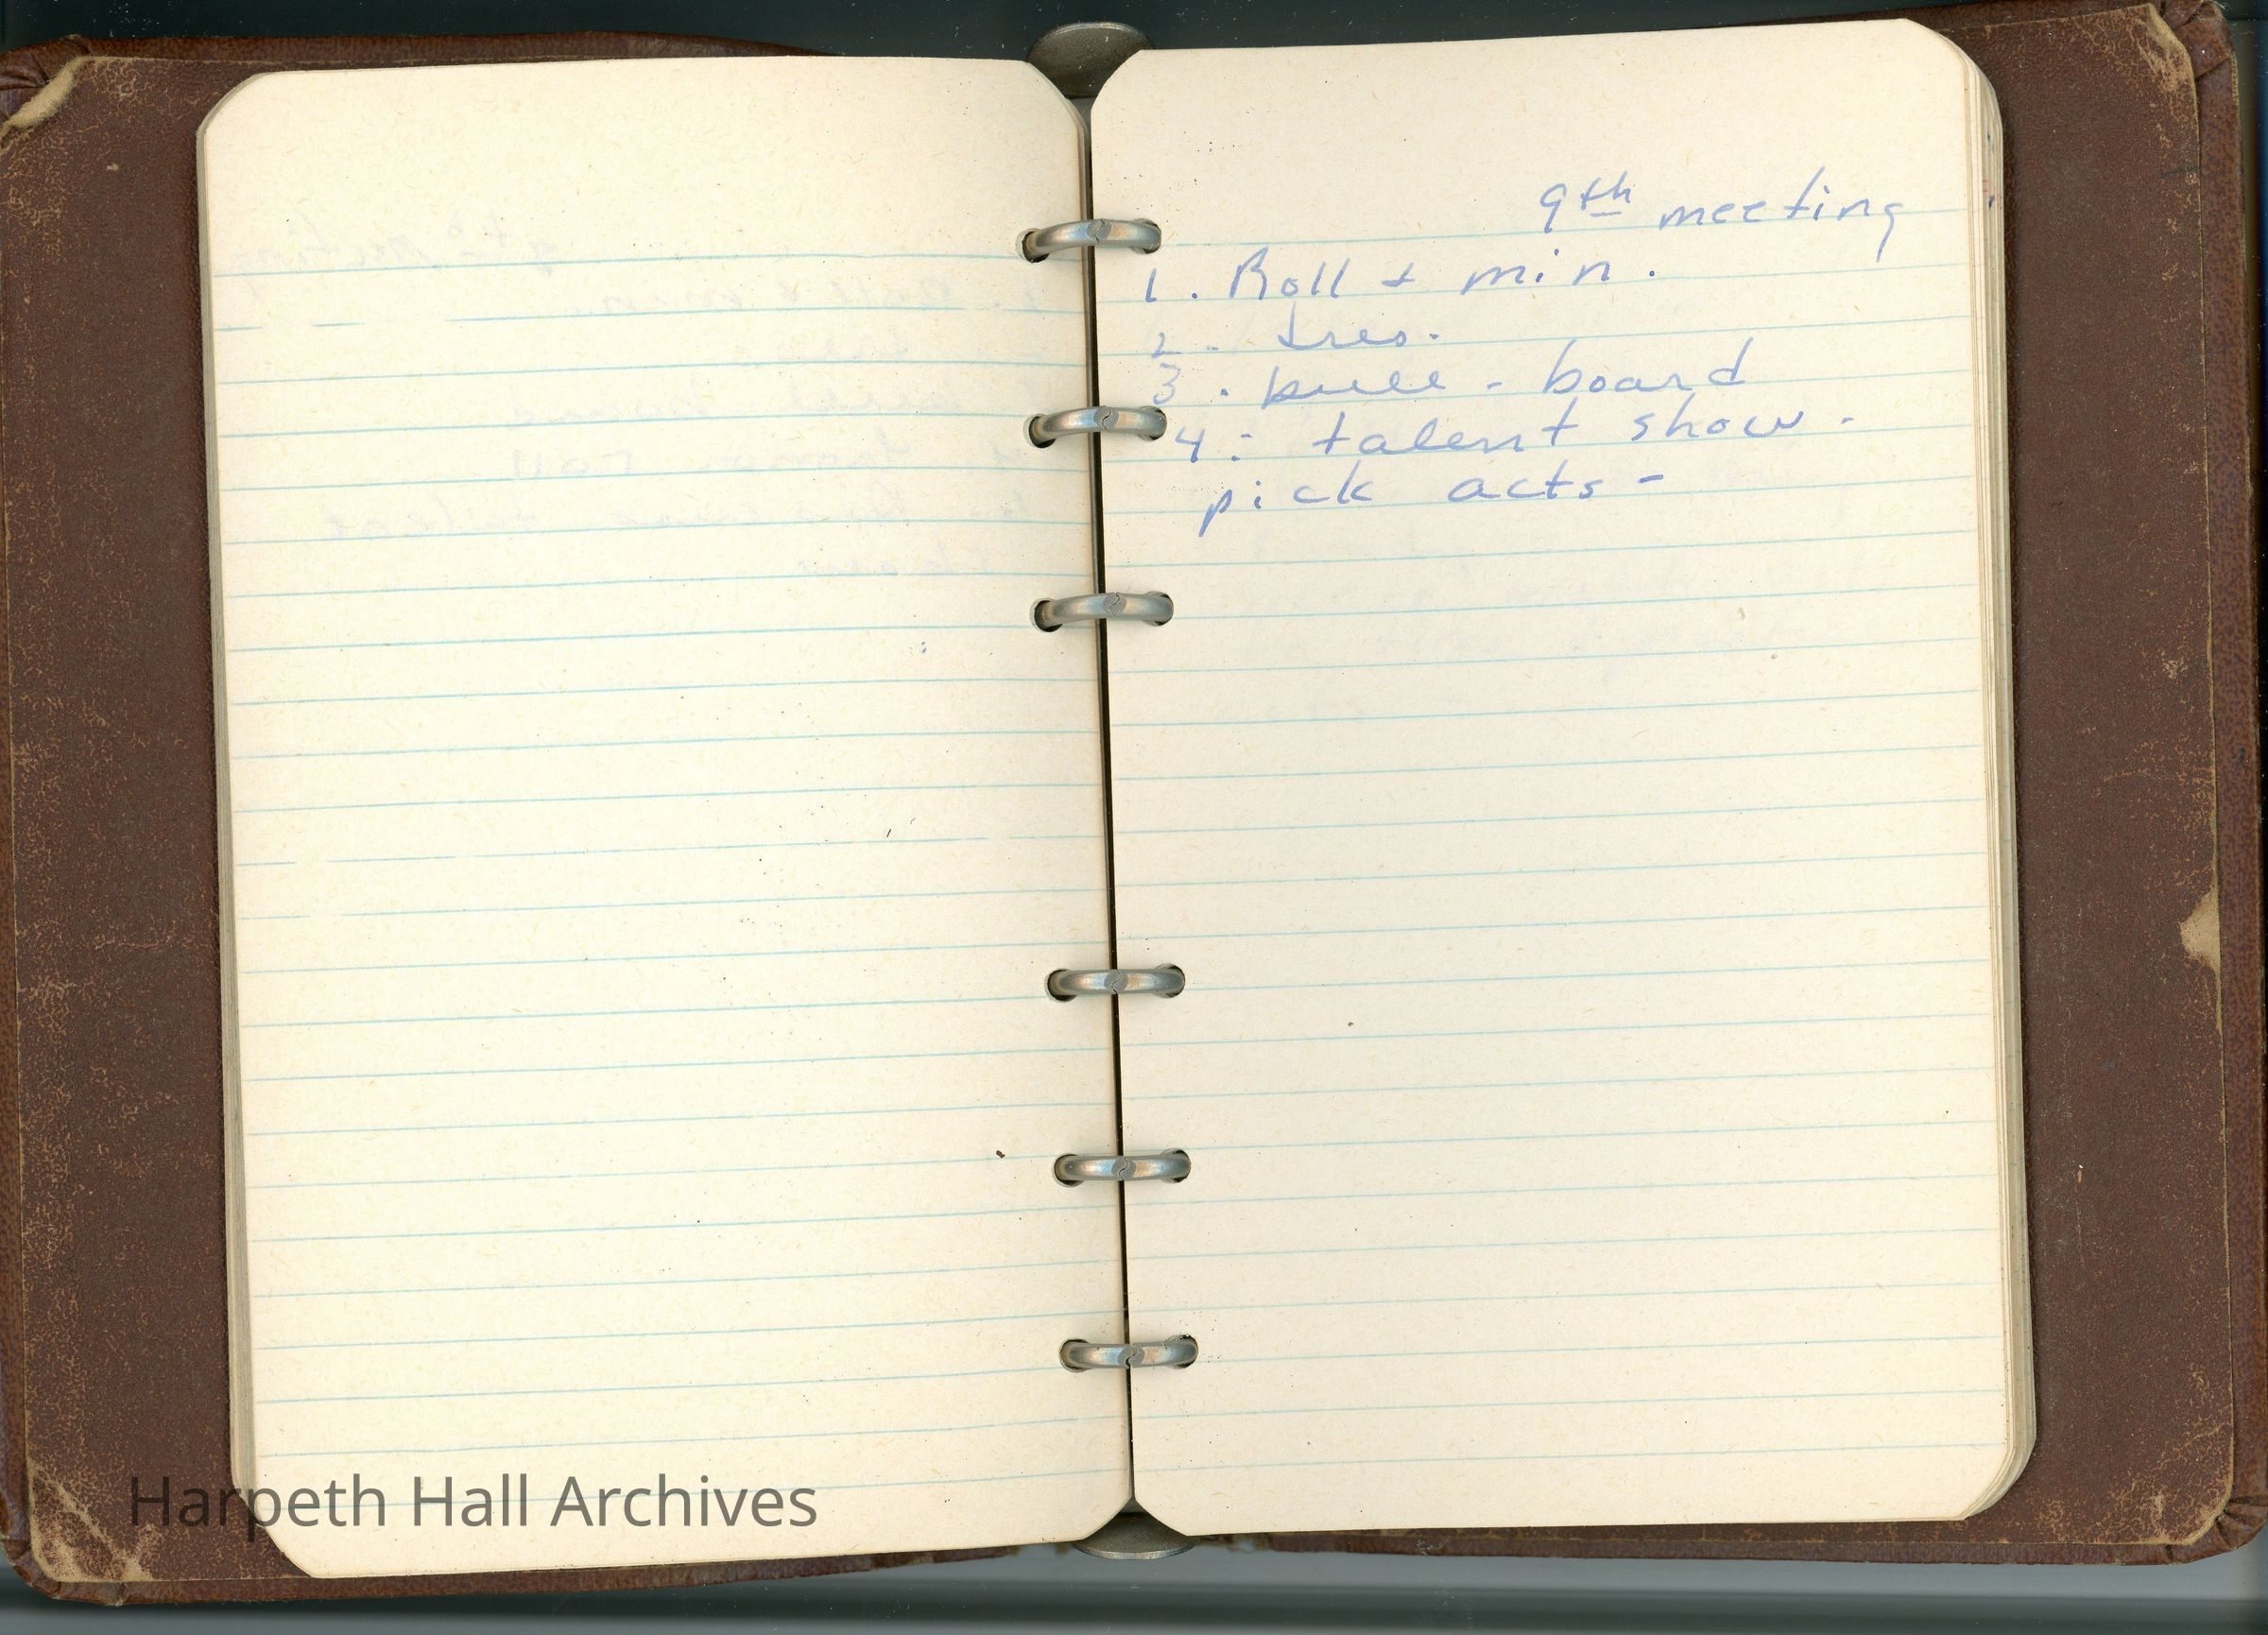 9th meeting
1. Roll + min.
2. tres.
3. bull - board
4. talent show.
pick acts -
Harpeth Hall Archives